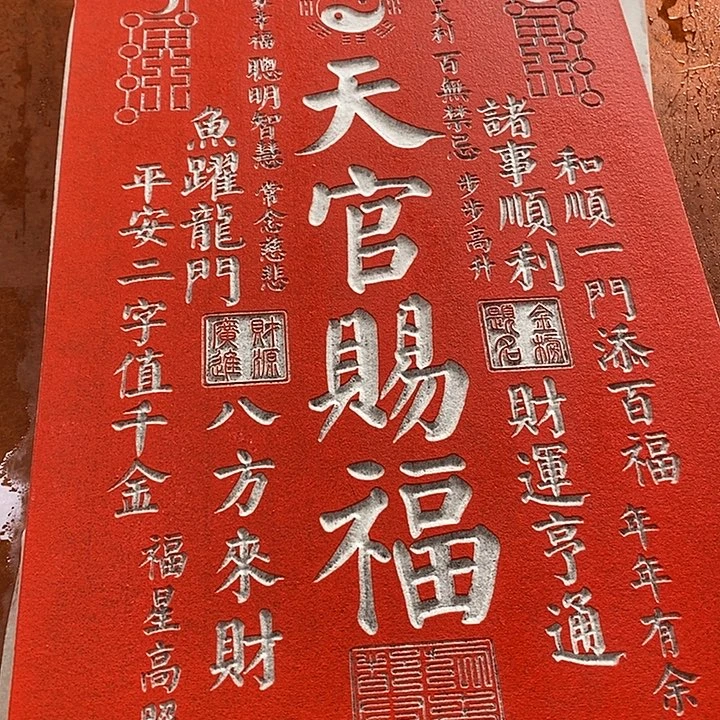 和順一門添百福 年年有余
諸事順利
金榜題名
財運亨通
大利 百無禁忌 步步高升
天官賜福
幸福 聰明智慧 常念慈悲
魚躍龍門
財源廣進
八方來財
平安二字值千金 福星高照